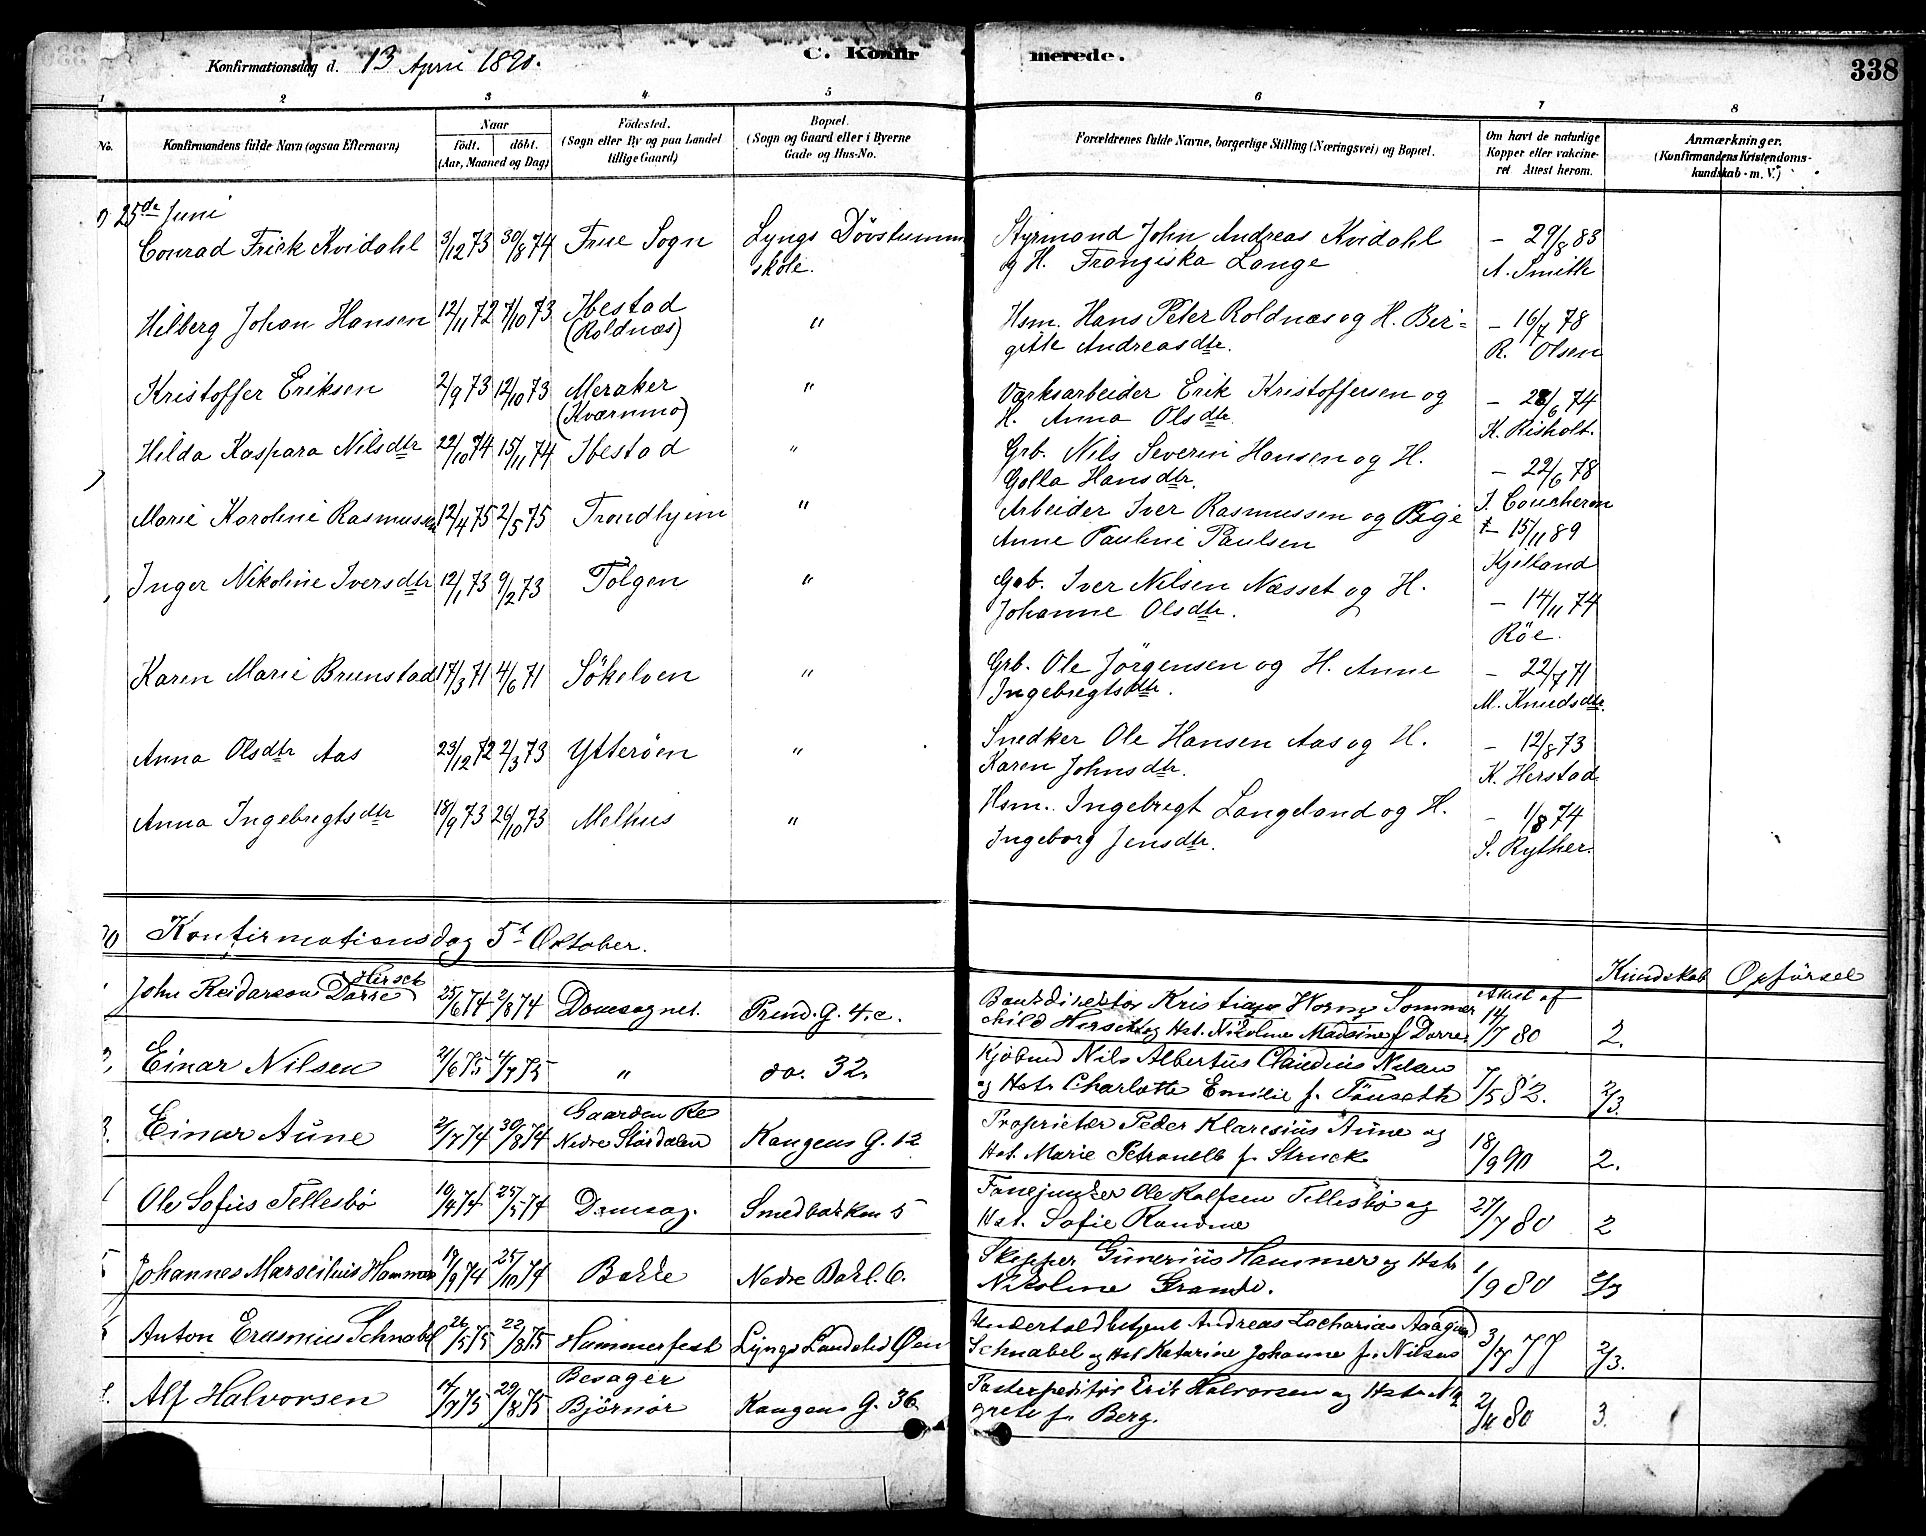 Konfirmationsdag d. 13 April 1890.
C. Konfirmerede.
338
1 2 3 4 5 6 7 8
No.
Konfirmandens fulde Navn (ogsaa Efternavn)
Naar
födt. döbt.
(Aar, Maaned og Dag)
Födested.
(Sogn eller By og paa Landet
tillige Gaard)
Bopæl.
(Sogn og Gaard eller i Byerne
Gade og Hus-No.
Forældrenes fulde Navne, borgerlige Stilling (Næringsvei) og Bopæl.
Om havt de naturlige
Kopper eller vakcine-
ret Attest herom.
Anmærkninger.
(Konfirmandens Kristendoms-
kundskab m. V.)
25de Juni
Conrad Frick Kvidahl 3/12 73 30/8 74 Frue Sogn Lyngs Døvstumme
skole.
Styrmand John Andreas Kvidahl
og H. Frangiska Lange
— 29/8 83
A. Smith
Hilberg Johan Hansen 12/11 72 7/10 73 Ibestad
(Roldnæs)
"
Hsm. Hans Peter Roldnæs og H. Ber=
gitte Andreasdtr.
— 16/7 78
R. Olsen
Kristoffer Eriksen 2/9 73 12/10 73 Meraker
(Kværnmo)
"
Værksarbeider Erik Kristoffersen og
H. Anna Olsdtr.
— 28/6 74
K. Risholt.
Hilda Kaspara Nilsdtr 22/10 74 15/11 74 Ibestad "
Grb. Nils Severin Hansen og H.
Golla Hansdtr.
— 22/6 78
J. Coucheron
Marie Karoline Rasmussen 12/4 75 2/5 75 Trondhjem "
Arbeider Iver Rasmussen og Pige
Anne Pauline Paulsen
— 15/11 89
Kjelland
Inger Nikoline Iversdtr 12/1 73 9/2 73 Tolgen "
Grb. Iver Nilsen Næsset og H.
Johanne Olsdtr.
— 14/11 74
Röe.
Karen Marie Brunstad 17/3 71 4/6 71 Sökelven "
Grb. Ole Jörgensen og H. Anne
Ingebregtsdtr.
— 22/7 71
M. Knudsdtr.
Anna Olsdtr Aas 23/12 72 2/3 73 Ytteröen "
Snedker Ole Hansen Aas og H.
Karen Johnsdtr.
— 12/8 73
K. Herstad
Anna Ingebregtsdtr 18/9 73 26/10 73 Melhus "
Hsm. Ingebregt Langeland og H.
Ingeborg Jensdtr.
— 1/8 74
S. Ryther.
Konfirmationsdag 5t October.
Kundskab Opförsel
John Reidarson Dorre Hirsch 25/6 74 2/8 74 Domesognet. Prind. G. 4.c.
Bankdirektör Kristian Worm Sommer
child Hirsch og Hst. Nikoline Madsine f Dorre.
Attest af
14/7 80 2.
Einar Nilsen 2/6 75 4/7 75 " do. 32.
Kjöbmd Nils Albertus Claudius Nilsen
og Hstr Charlotte Emilie f. Fönseth
7/5 82. 2/3
Einar Aune 2/7 74 30/8 74 Gaarden Re
Nedre Stördalen
Kongens G. 12
Proprietær Peder Klaresius Aune og
Hst. Marie Petronelle f. Struck
18/9 90 2.
Ole Sofus Tellesbö 19/4 74 25/5 74 Domesog. Smedbakken 5
Fanejunker Ole Rolfsen Tellesbö og
Hst. Sofie Randine
27/7 80 2
Johannes Marselius Hammer 19/9 74 25/10 74 Bakke Nedre Bakl. 6.
Skipper Gunerius Hammer og Hstr
Nikoline Grande.
1/9 80 2/3
Anton Erasmus Schnabel 26/5 75 22/8 75 Hammerfest Lyngs Landsted Öen
Undertoldbetjent Andreas Zacharias Aagaard
Schnabel og Hst Katarine Johanne f. Nilsen
3/7 77 2/3.
Alf Halvorsen 14/7 75 29/8 75 Besager
Björnör
Kongens G. 36
Postexpeditör Erik Halvorsen og Hstr
grete f. Berg.
80 3.